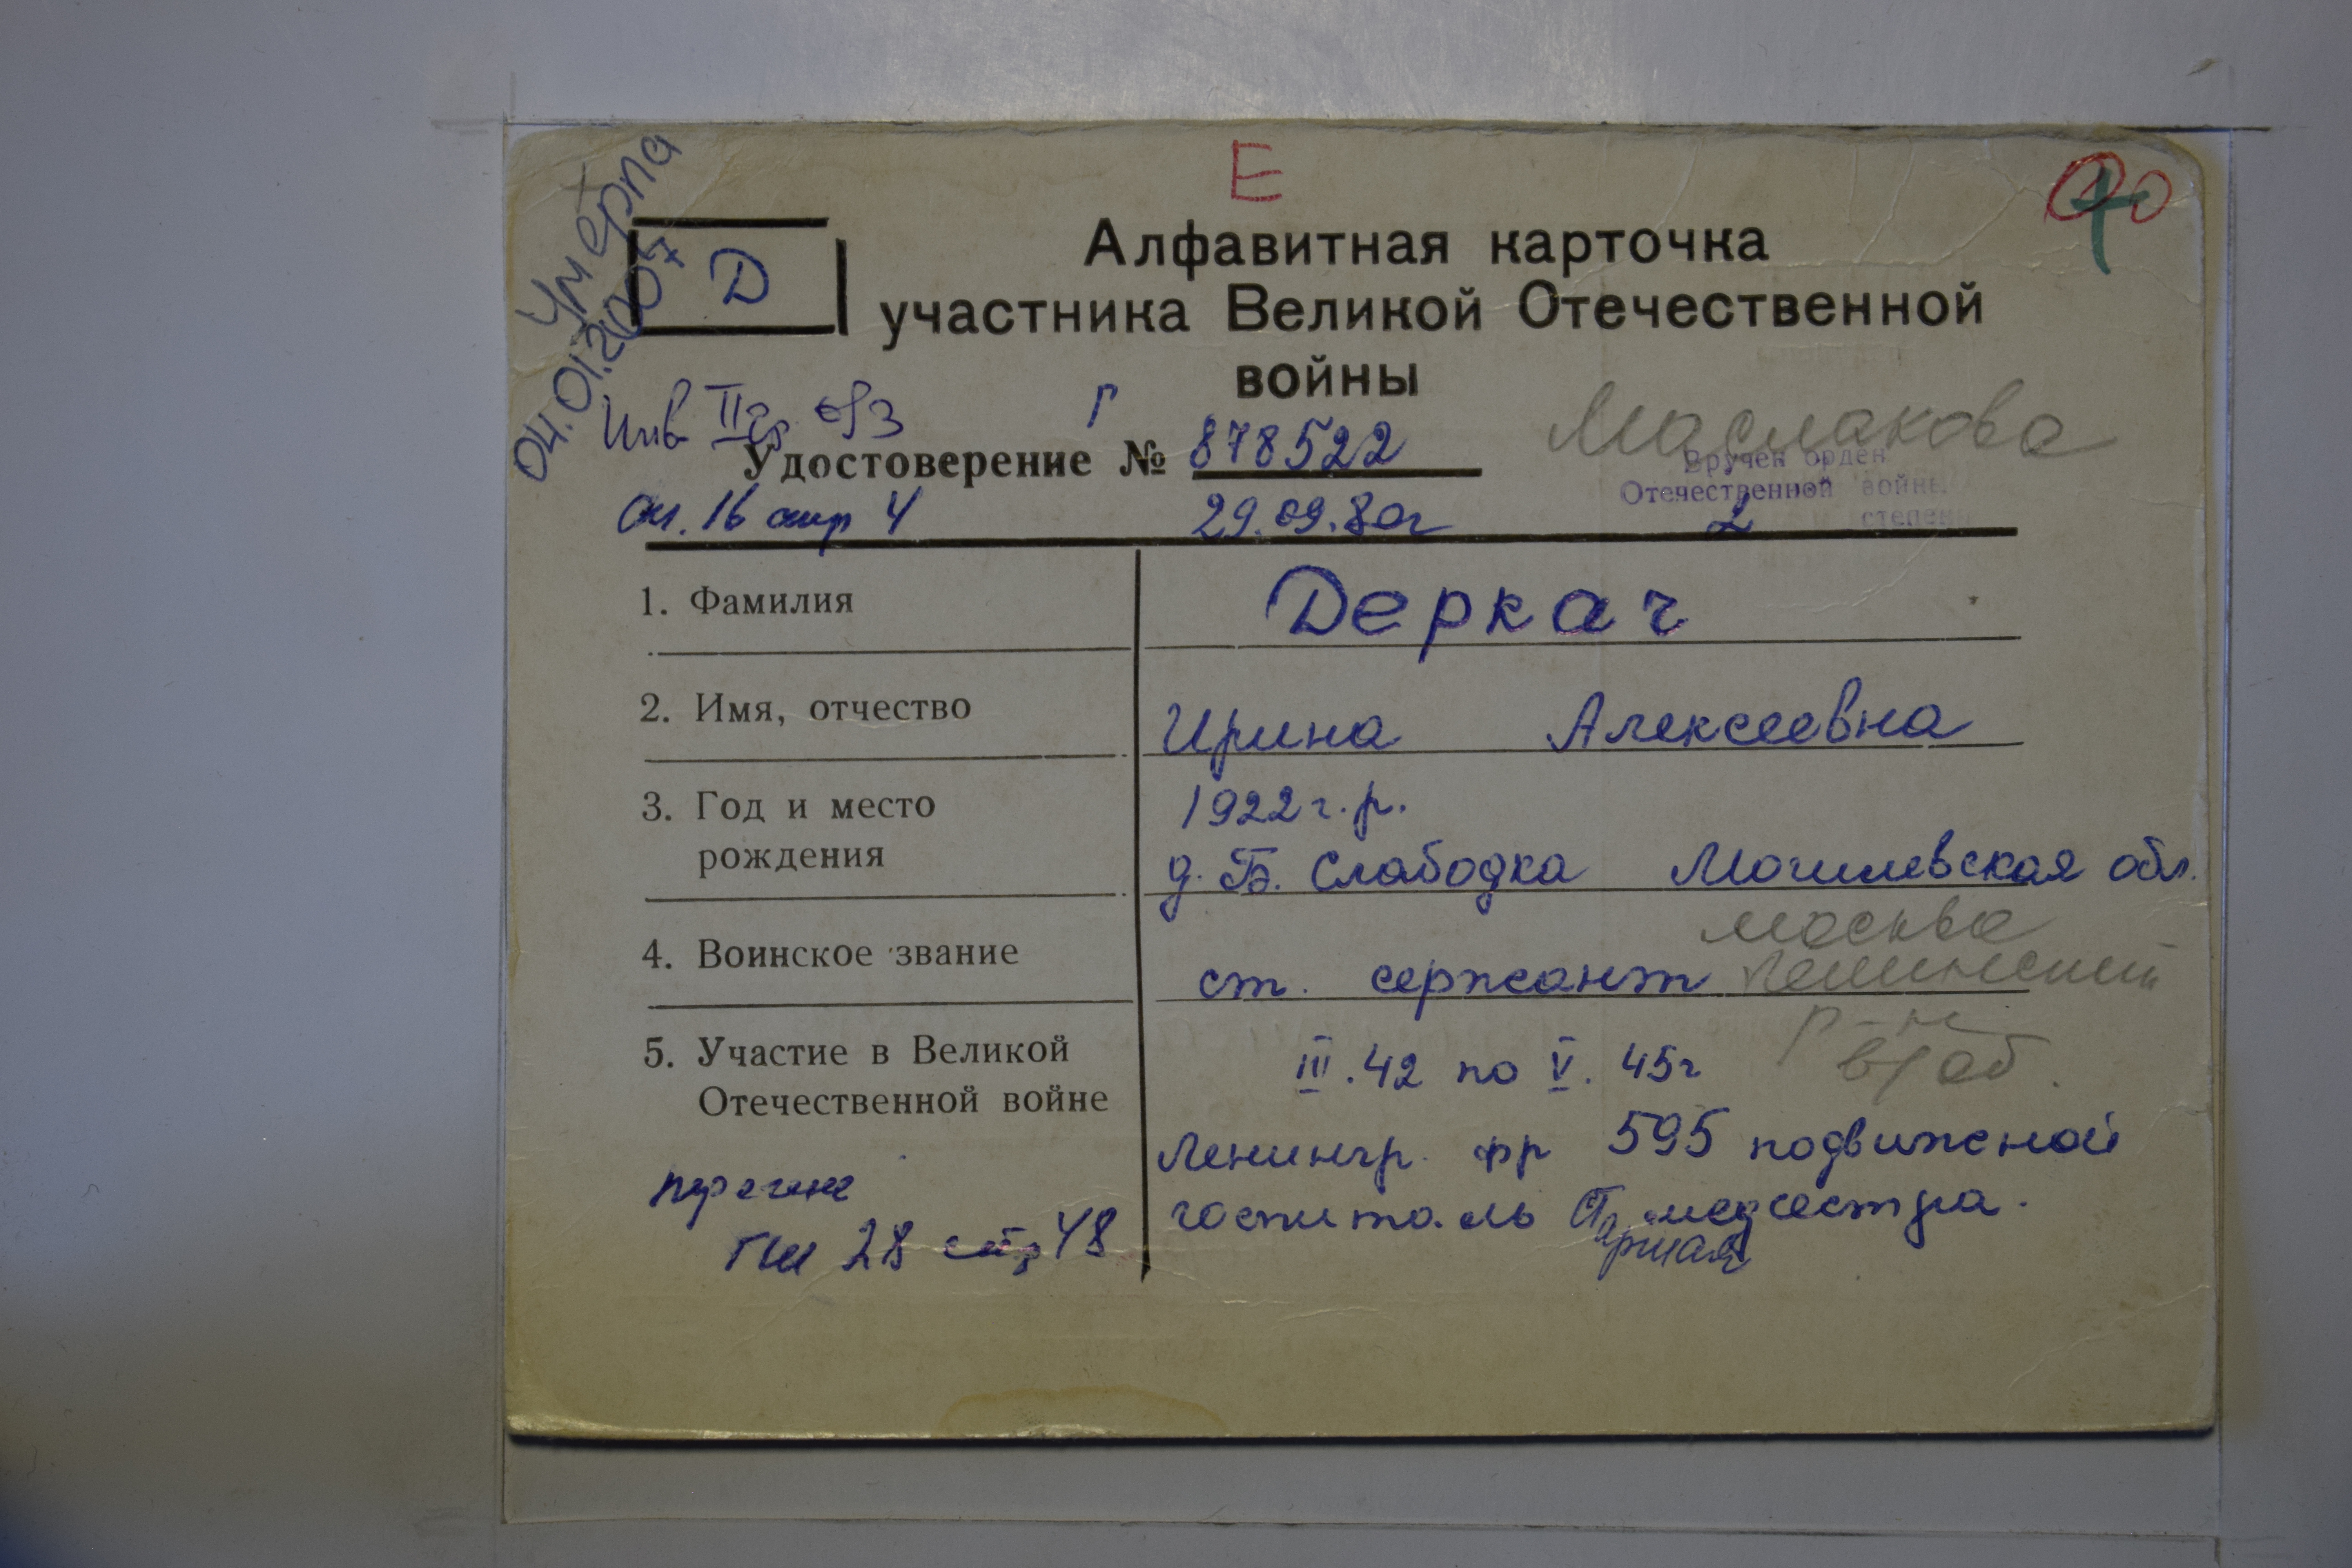 Е
Умерла
04.01.2007
Д
Алфавитная карточка
участника Великой Отечественной
войны
Инв II гр
Г
Удостоверение № 878522
Маслакова
Вручен орден
Отечественной войны
2 степени
оп. 16 стр 4
29.09.80г
1. Фамилия
Деркач
2. Имя, отчество
Ирина Алексеевна
3. Год и место
рождения
1922 г.р.
д. Б. Слабодка Могилевская обл.
4. Воинское звание
ст. сержант
Москва
Ленинский
р-н
5. Участие в Великой
Отечественной войне
III.42 по V.45г
Ленингр. фр 595 подвижной
госпиталь Старшая медсестра.
28 стр 48